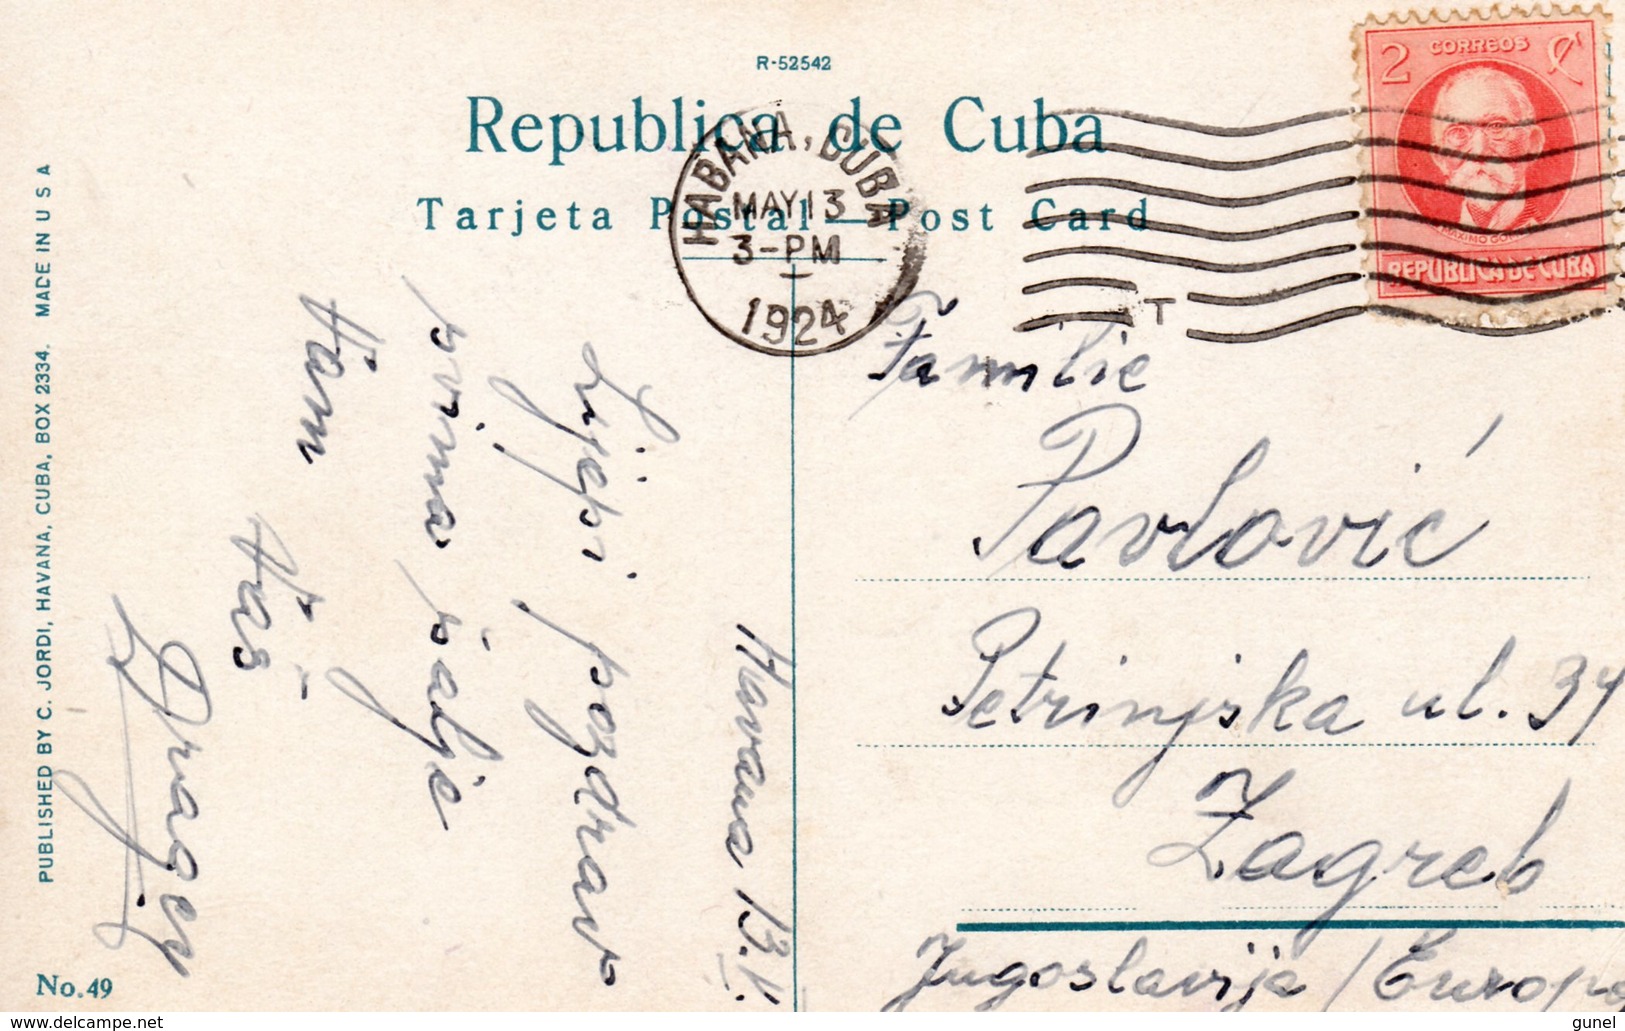 R-52542
Republica de Cuba
Tarjeta Postal—Post Card
HABANA, CUBA
MAY 13
3-PM
1924
2 CORREOS
MAXIMO
REPUBLICA DE CUBA
T
PUBLISHED BY C. JORDI, HAVANA, CUBA, BOX 2334. MADE IN U S A
No. 49
Havana 13.V.
Lijepi pozdrav
prima šalje
Vam
Vaš
Familie
Pavlović
Petrinjska ul. 34
Zagreb
Jugoslavija / Europa
gunel